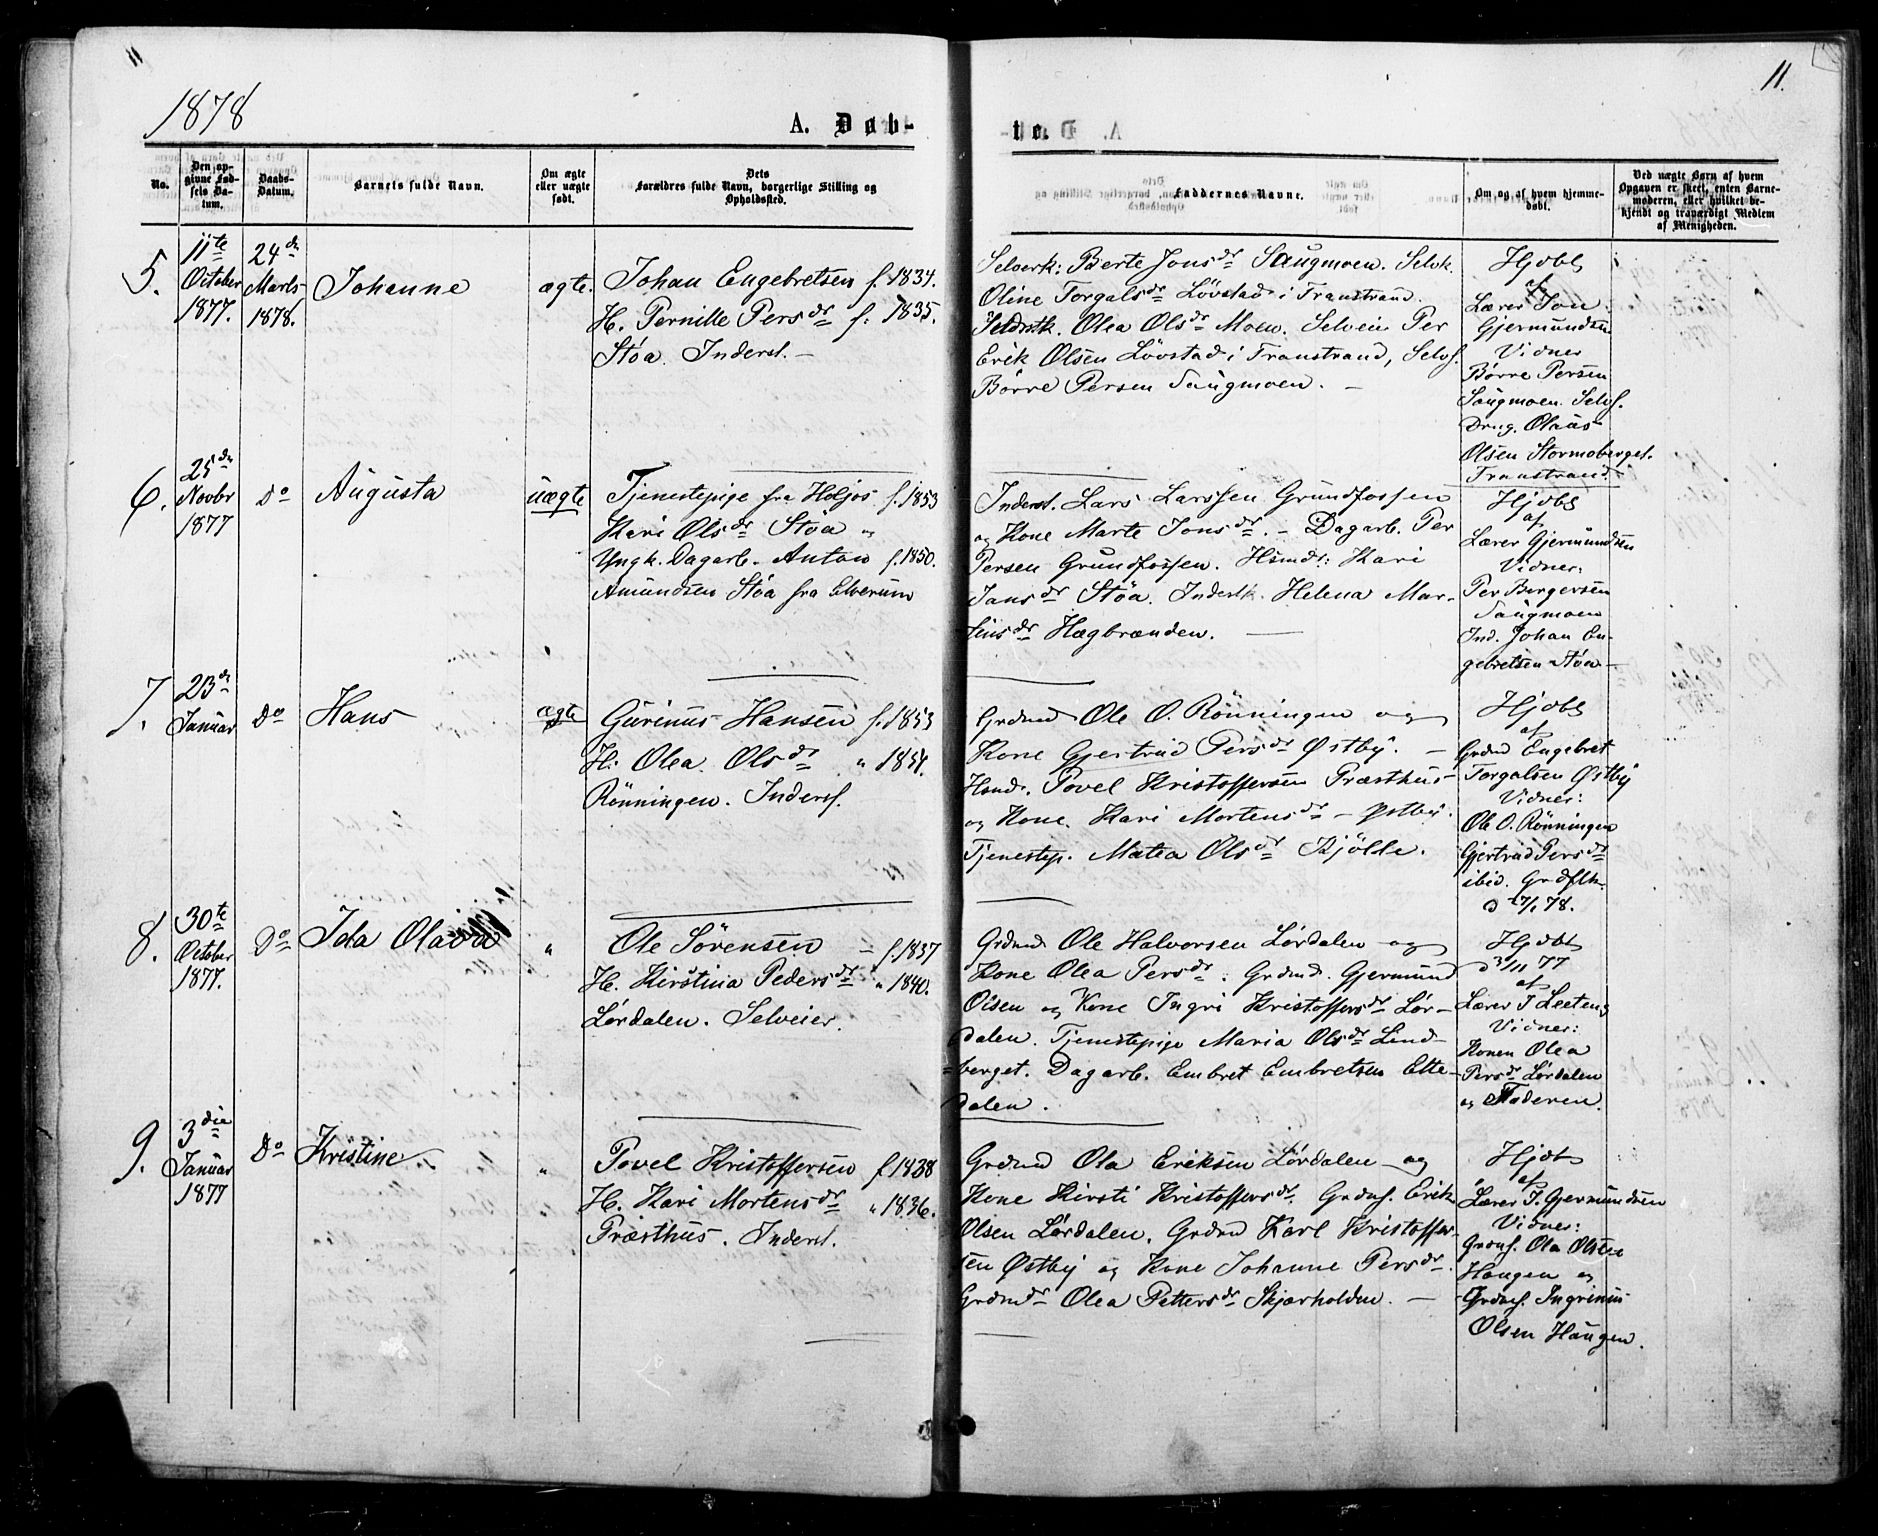 11
11.
1878
A. Døb-
te.
No.
Den opgivne Fødsels Datum.
Daabs-Datum.
Barnets fulde Navn.
Om ægte eller uægte født.
Dets Forældres fulde Navn, borgerlige Stilling og Opholdssted.
Faddernes Navne.
Om og af hvem hjemmedøbt.
Ved uægte Børn af hvem Opgaven er skeet, enten Barnemoderen, eller hvilket bekjendt og troværdigt Medlem af Menigheden.
5.
11te
October
1877.
24de
Marts
1878.
Johanne
ægte.
Johan Engebretsen f. 1834.
H. Pernille Persdr f. 1835.
Støa. Inderst. –
Selverk: Berte Jonsdr Saugmoen. Selvk.
Oline Torgalsdr Løvstad i Transtrand.
Olea Olsdr Moen. Selveier Per
Erik Olsen Løvstad i Transtrand, Selvf.
Børre Persen Saugmoen. –
Hjdbt
af
Lærer Jon
Gjermundsen
Vidner
Børre Persen
Saugmoen. Selvf.
Olaus
Olsen Stormoberget.
Transtrand
6.
25de
Novbr
1877
Do
Augusta
uægte
Tjenestepige fra Holjos f. 1853
Kari Olsdr Støa og
Yngk. Dagarb. Anton f. 1850.
Amundsen Støa fra Elverum
Inderst. Lars Larssen Grundfossen
og Kone Marte Jonsdr. – Dagarb. Per
Persen Grundfossen. Hsmdr: Kari
Jansdr Støa. Inderstk. Helena Mar-
tinsdr Hægbrænden. –
Hjdbt
af
Lærer Gjermundsen
Vidner:
Per Borgersen
Saugmoen
Ind. Johan En-
gebretsen Støa –
7.
23de
Januar
Do
Hans
ægte
Gurinus Hansen f. 1853
H. Olea Olsdr " 1854.
Rönningen. Inderst.
Grdmd Ole O. Rönningen og
Kone Gjertrud Persdr Østby. –
Hsmdr. Povel Kristoffersen Præsthus
og Kone Kari Mortensdr – Østby.
Tjenestep. Matea Olsdr Kjölle.
Hjdbt
af
Grdmd Engebret
Torgalsen Østby
Vidner:
Ole O. Rönningen
Gjertrud Persdr
ibid.
78.
8.
30te
October
1877.
Do
Ida Olava
"
Ole Sörensen – f. 1837
H. Kirstina Pedersdr " 1840.
Lørdalen. Selveier.
Grdmd Ole Halvorsen Lørdalen og
Kone Olea Persdr. Grdmd. Gjermund
Olsen og Kone Ingri Kristoffersdr Lør-
dalen. Tjenestepige Maria Olsdr Lind-
berget. Dagarb. Embret Embretsen Ette-
dalen.
Hjdbt
d 3/11 77
af
Lærer
Vidner:
Konen Olea
Persdr Lørdalen
og Faderen.
9.
3die
Januar
1877
Do
Kristine
"
Povel Kristoffersen f. 1838
H. Kari Mortensdr " 1836.
Præsthus. Inderst.
Grdmd Ola Eriksen Lørdalen og
Kone Kirsti Kristoffersdr. Grdmf. Erik
Olsen Lørdalen. Grdmd Karl Kristoffer-
sen Østby og Kone Johanne Persdr.
Grdmdr Olea Pettersdr Skjærholden. –
Hjdbt
af
Lærer J. Gjermundsen
Vidner:
Grdmf. Ola Olsen
Haugen og
Grdmf. Ingrinus
Olsen Haugen.